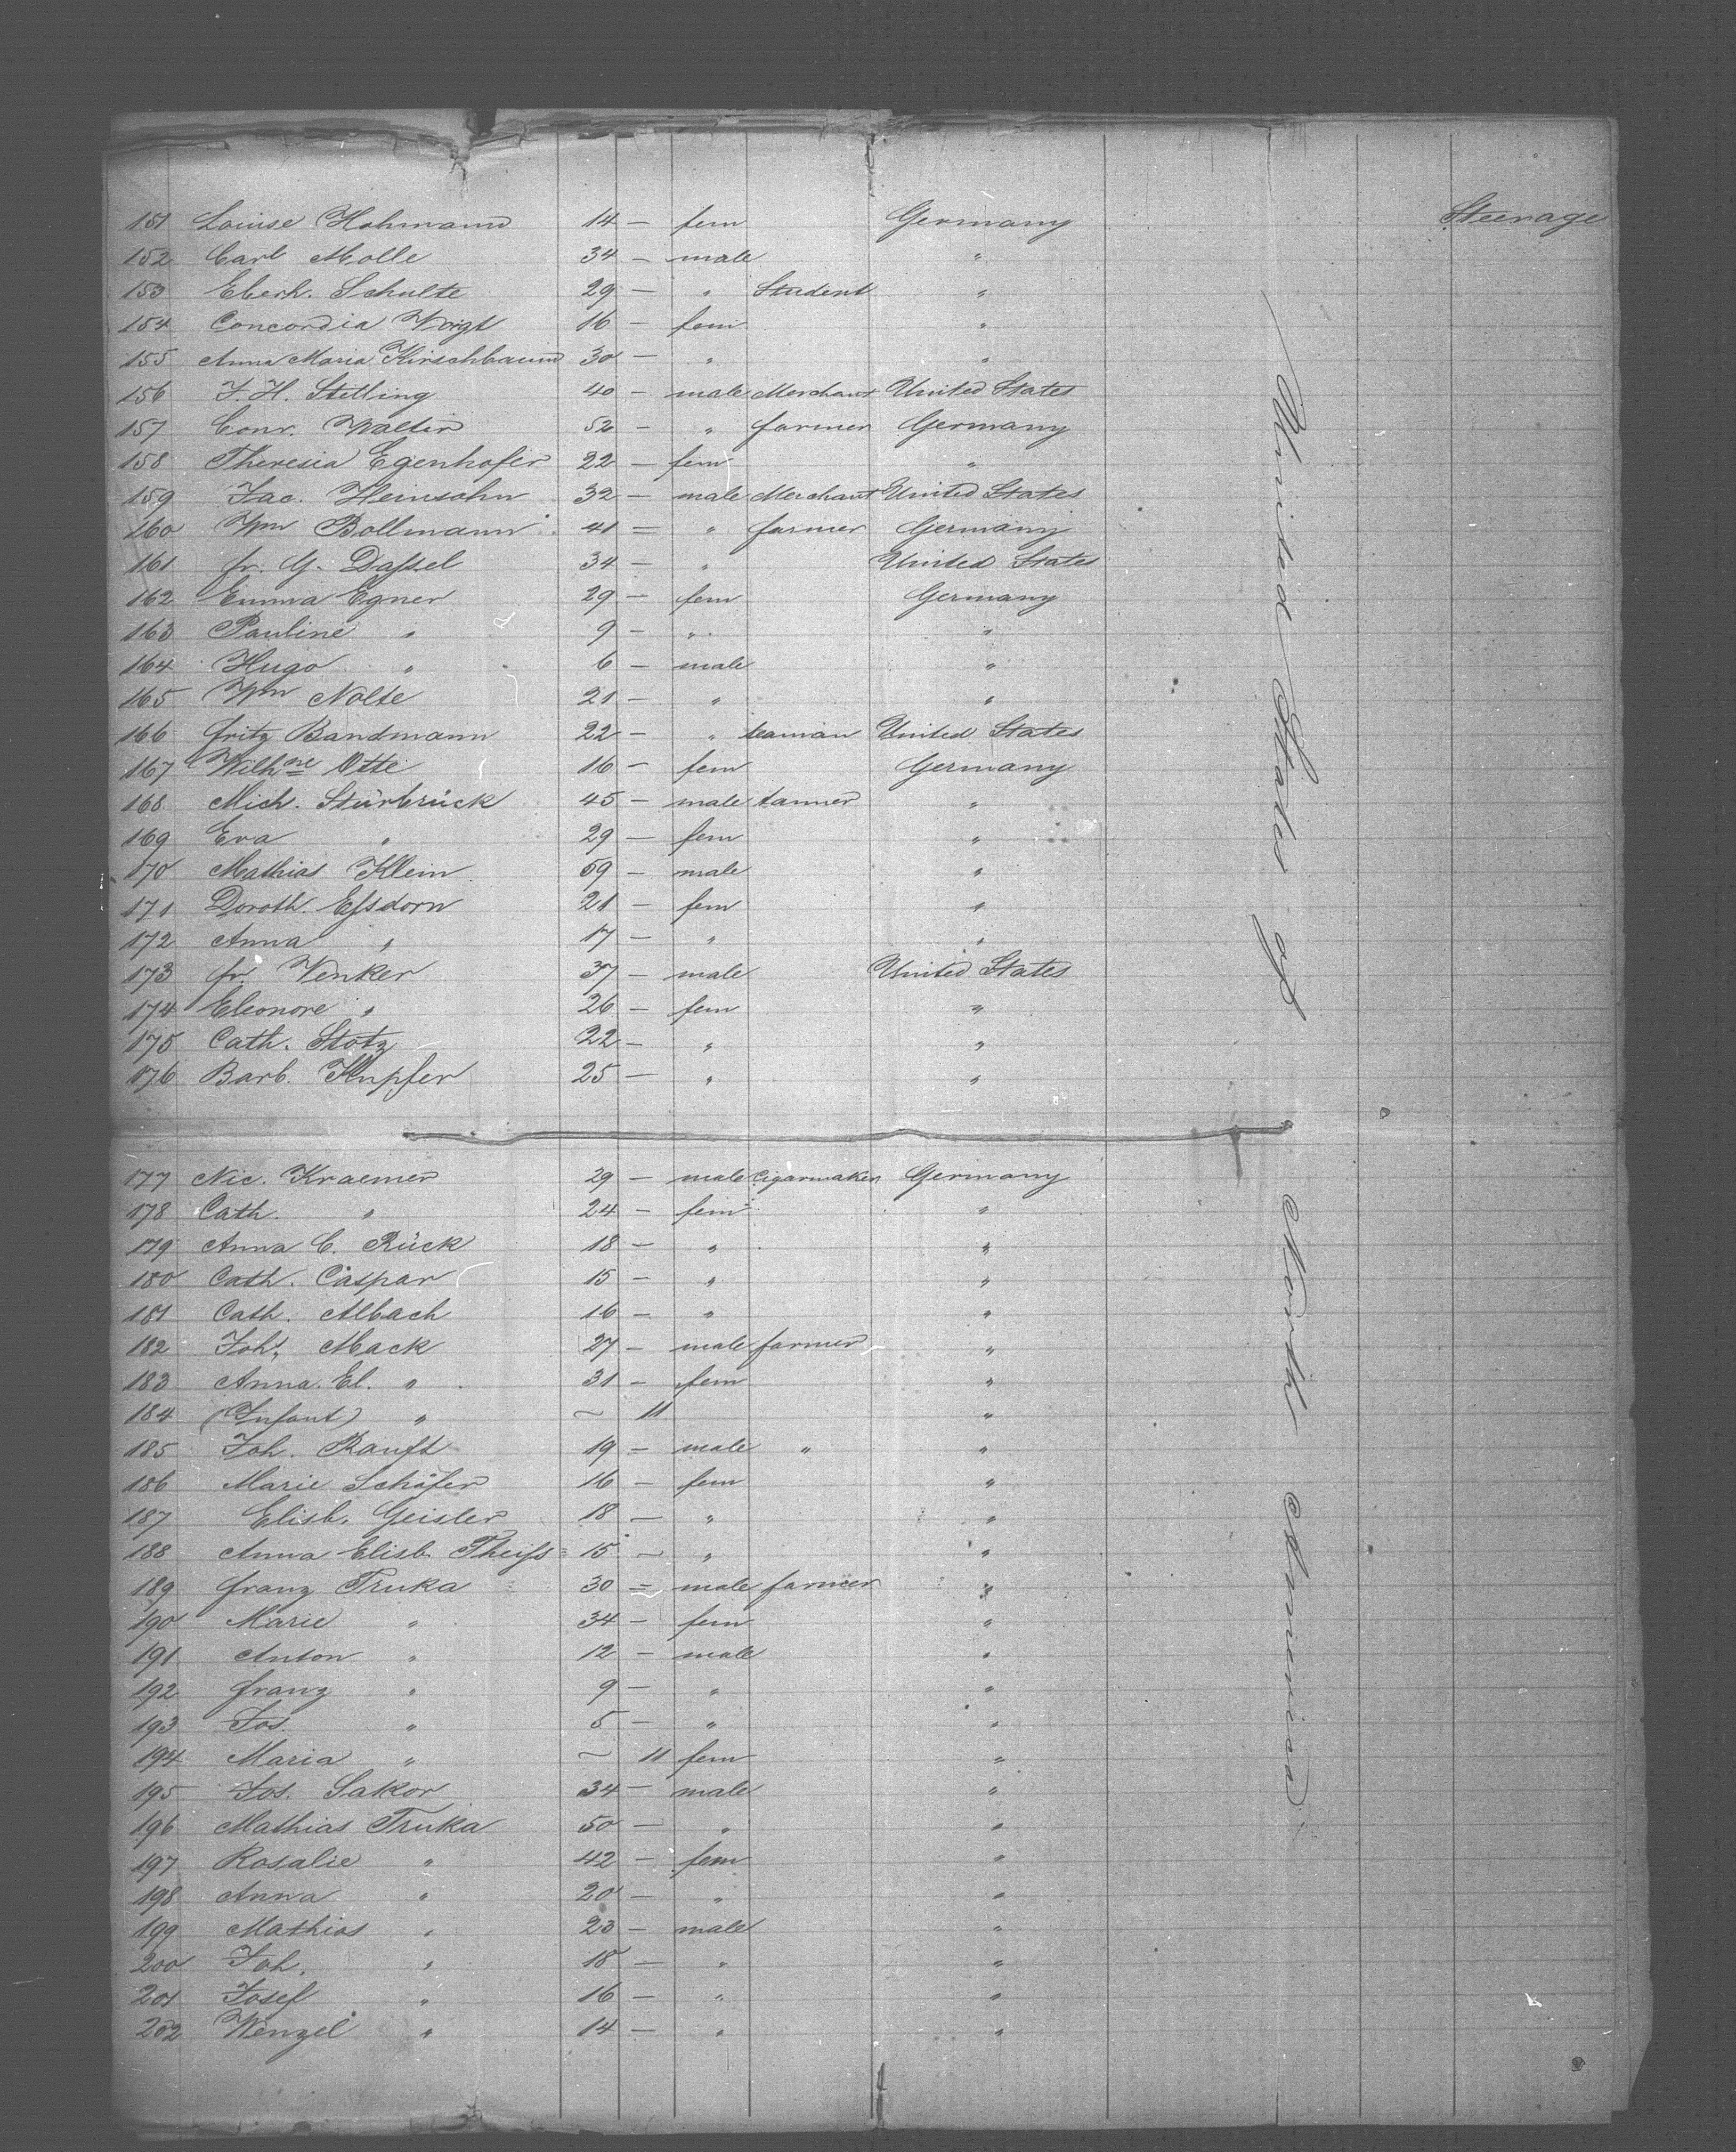 151 Louise Hohmann 14 — fem Germany Steerage
152 Carl Molle 34 — male "
153 Eberh. Schulte 29 — " Student "
154 Concordia Voigt 16 — fem "
155 Anna Maria Kirschbaum 30 — " "
156 J. H. Stelling 40 — male Merchant United States
157 Conr. Walter 52 — " farmer Germany
158 Theresia Egenhofer 22 — fem "
159 Jac. Heinsohn 32 — male Merchant United States
160 Wm Bollmann 41 — " farmer Germany
161 fr. G. Daſsel 34 — " United States
162 Emma Egner 29 — fem Germany
163 Pauline " 9 — " "
164 Hugo " 6 — male "
165 Wm Nolte 21 — " "
166 fritz Bandmann 22 — " seaman United States
167 Wilhne Otte 16 — fem Germany
168 Mich. Stürbrück 45 — male tanner "
169 Eva " 29 — fem "
170 Mathias Klein 59 — male "
171 Doroth. Eſsdorn 21 — fem "
172 Anna " 17 — " "
173 fr. Venker 37 — male United States
174 Eleonore " 26 — fem "
175 Cath. Stotz 22 — " "
176 Barb. Knpfer 25 — " "
177 Nic. Kraemer 29 — male Cigarmaker Germany
178 Cath. " 24 — fem "
179 Anna C. Rück 18 — " "
180 Cath. Caspar 15 — " "
181 Cath. Albach 16 — " "
182 Johs. Mack 27 — male farmer "
183 Anna El. " 31 — fem "
184 (Infant) " ~ 11 "
185 Joh. Ranft 19 — male " "
186 Marie Schäfer 16 — fem "
187 Elisb. Geisler 18 — " "
188 Anna Elisb. Theiſs 15 — " "
189 franz Truka 30 — male farmer "
190 Marie " 34 — fem "
191 Anton " 12 — male "
192 franz " 9 — " "
193 Jos. " 5 — " "
194 Maria " ~ 11 fem "
195 Jos. Sakor 34 — male "
196 Mathias Truka 50 — " "
197 Rosalie " 42 — fem "
198 Anna " 20 — " "
199 Mathias " 23 — male "
200 Joh. " 18 — " "
201 Josef " 16 — " "
202 Wenzel " 14 — " "
United States of North America